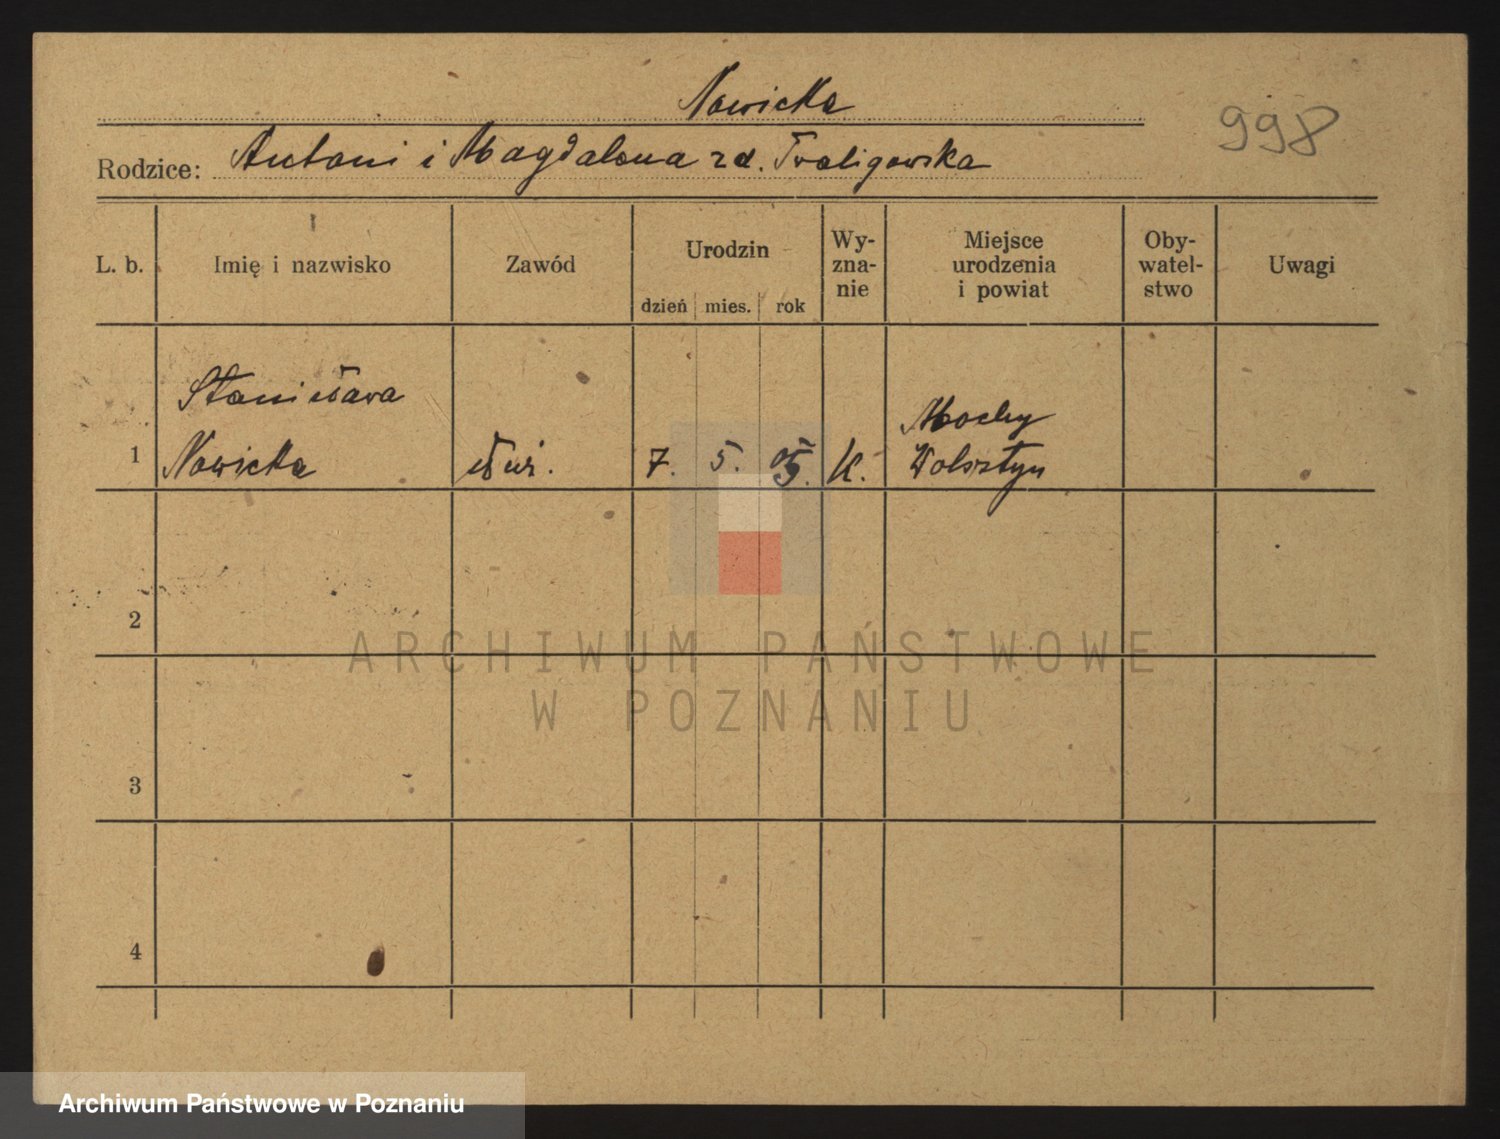 Nowicka
998
Rodzice: Antoni i Magdalena zd. Fraligowska
L. b. Imię i nazwisko Zawód Urodzin dzień mies. rok Wy-zna-nie Miejsce urodzenia i powiat Oby-watel-stwo Uwagi
Stanisława Mochy
1 Nowicka służ. 7. 5. 05. K. Wolsztyn
2
ARCHIWUM PAŃSTWOWE
W POZNANIU
3
4
Archiwum Państwowe w Poznaniu